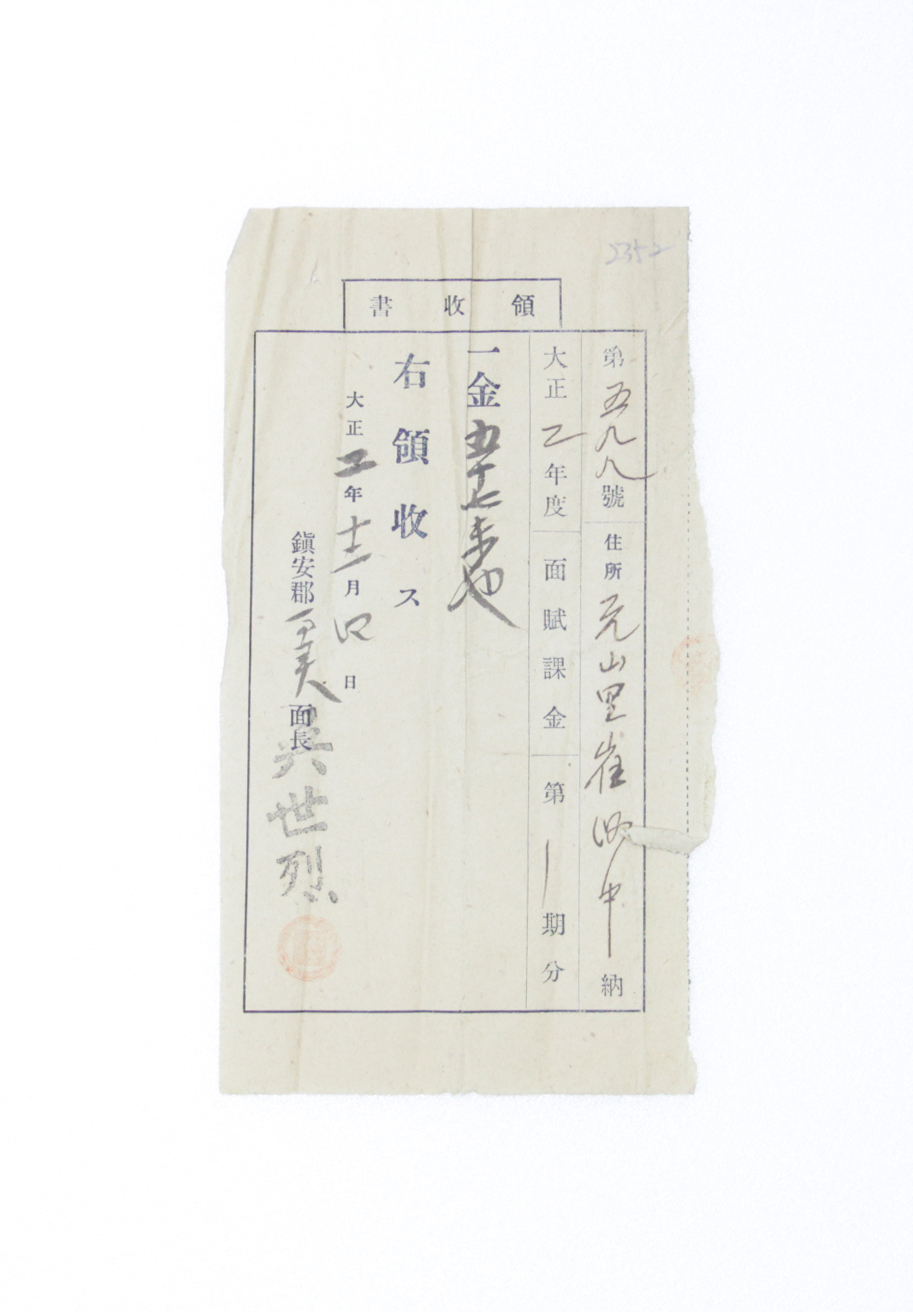 2352
領收書
第五九八號 住所 元山里 崔 中 納
大正 二 年度 面賦課金 第 一 期分
一金五十七戔也
右領收ス
大正 二 年 十二 月 日
鎭安郡 面長 吳世烈